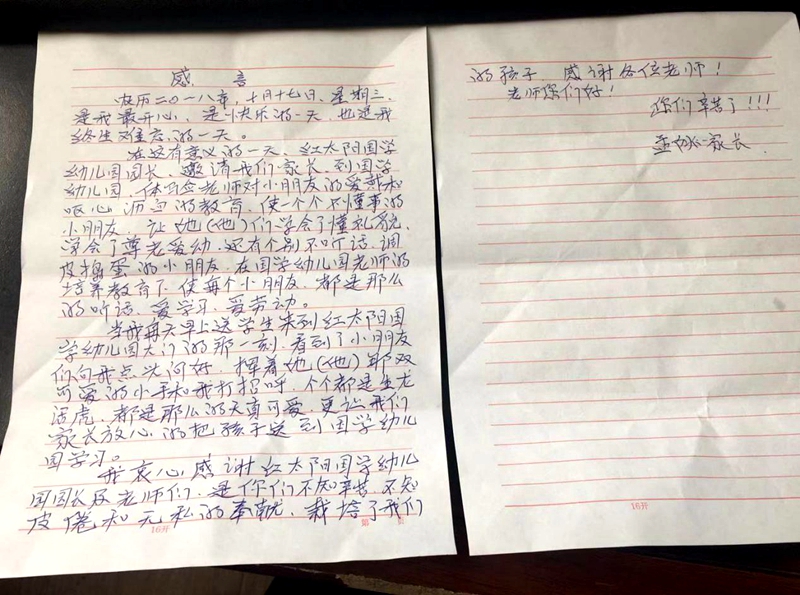 感 言
农历二〇一八年,十月十七日,星期三,
是我最开心、是个快乐的一天,也是我
终生难忘的一天。
在这有意义的一天,红太阳国学
幼儿园园长,邀请我们家长,到国学
幼儿园,体验老师对小朋友的爱护和
呕心沥血的教育,使一个个不懂事的
小朋友,让她(他)们学会了懂礼貌,
学会了尊老爱幼,还有个别不听话,调
皮捣蛋的小朋友,在国学幼儿园老师的
培养教育下,使每个小朋友,都是那么
的听话,爱学习,爱劳动。
当我每天早上送学生来到红太阳国
学幼儿园大门的那一刻,看到了小朋友
们向我点头问好,挥着她(他)那双
可爱的小手和我打招呼,个个都是生龙
活虎,都是那么的天真可爱,更让我们
家长放心的把孩子送到国学幼儿
园学习。
我衷心感谢红太阳国学幼儿
园园长及老师们,是你们不知辛苦,不知
疲倦和无私的奉献,栽培了我们
16开
第 页
的孩子,感谢各位老师!
老师你们好!
你们辛苦了!!!
家长
16开